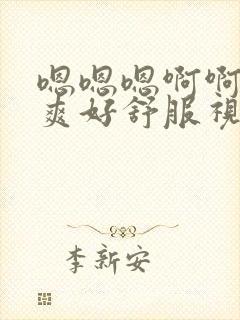 嗯嗯嗯啊啊
爽好舒服視
李新安